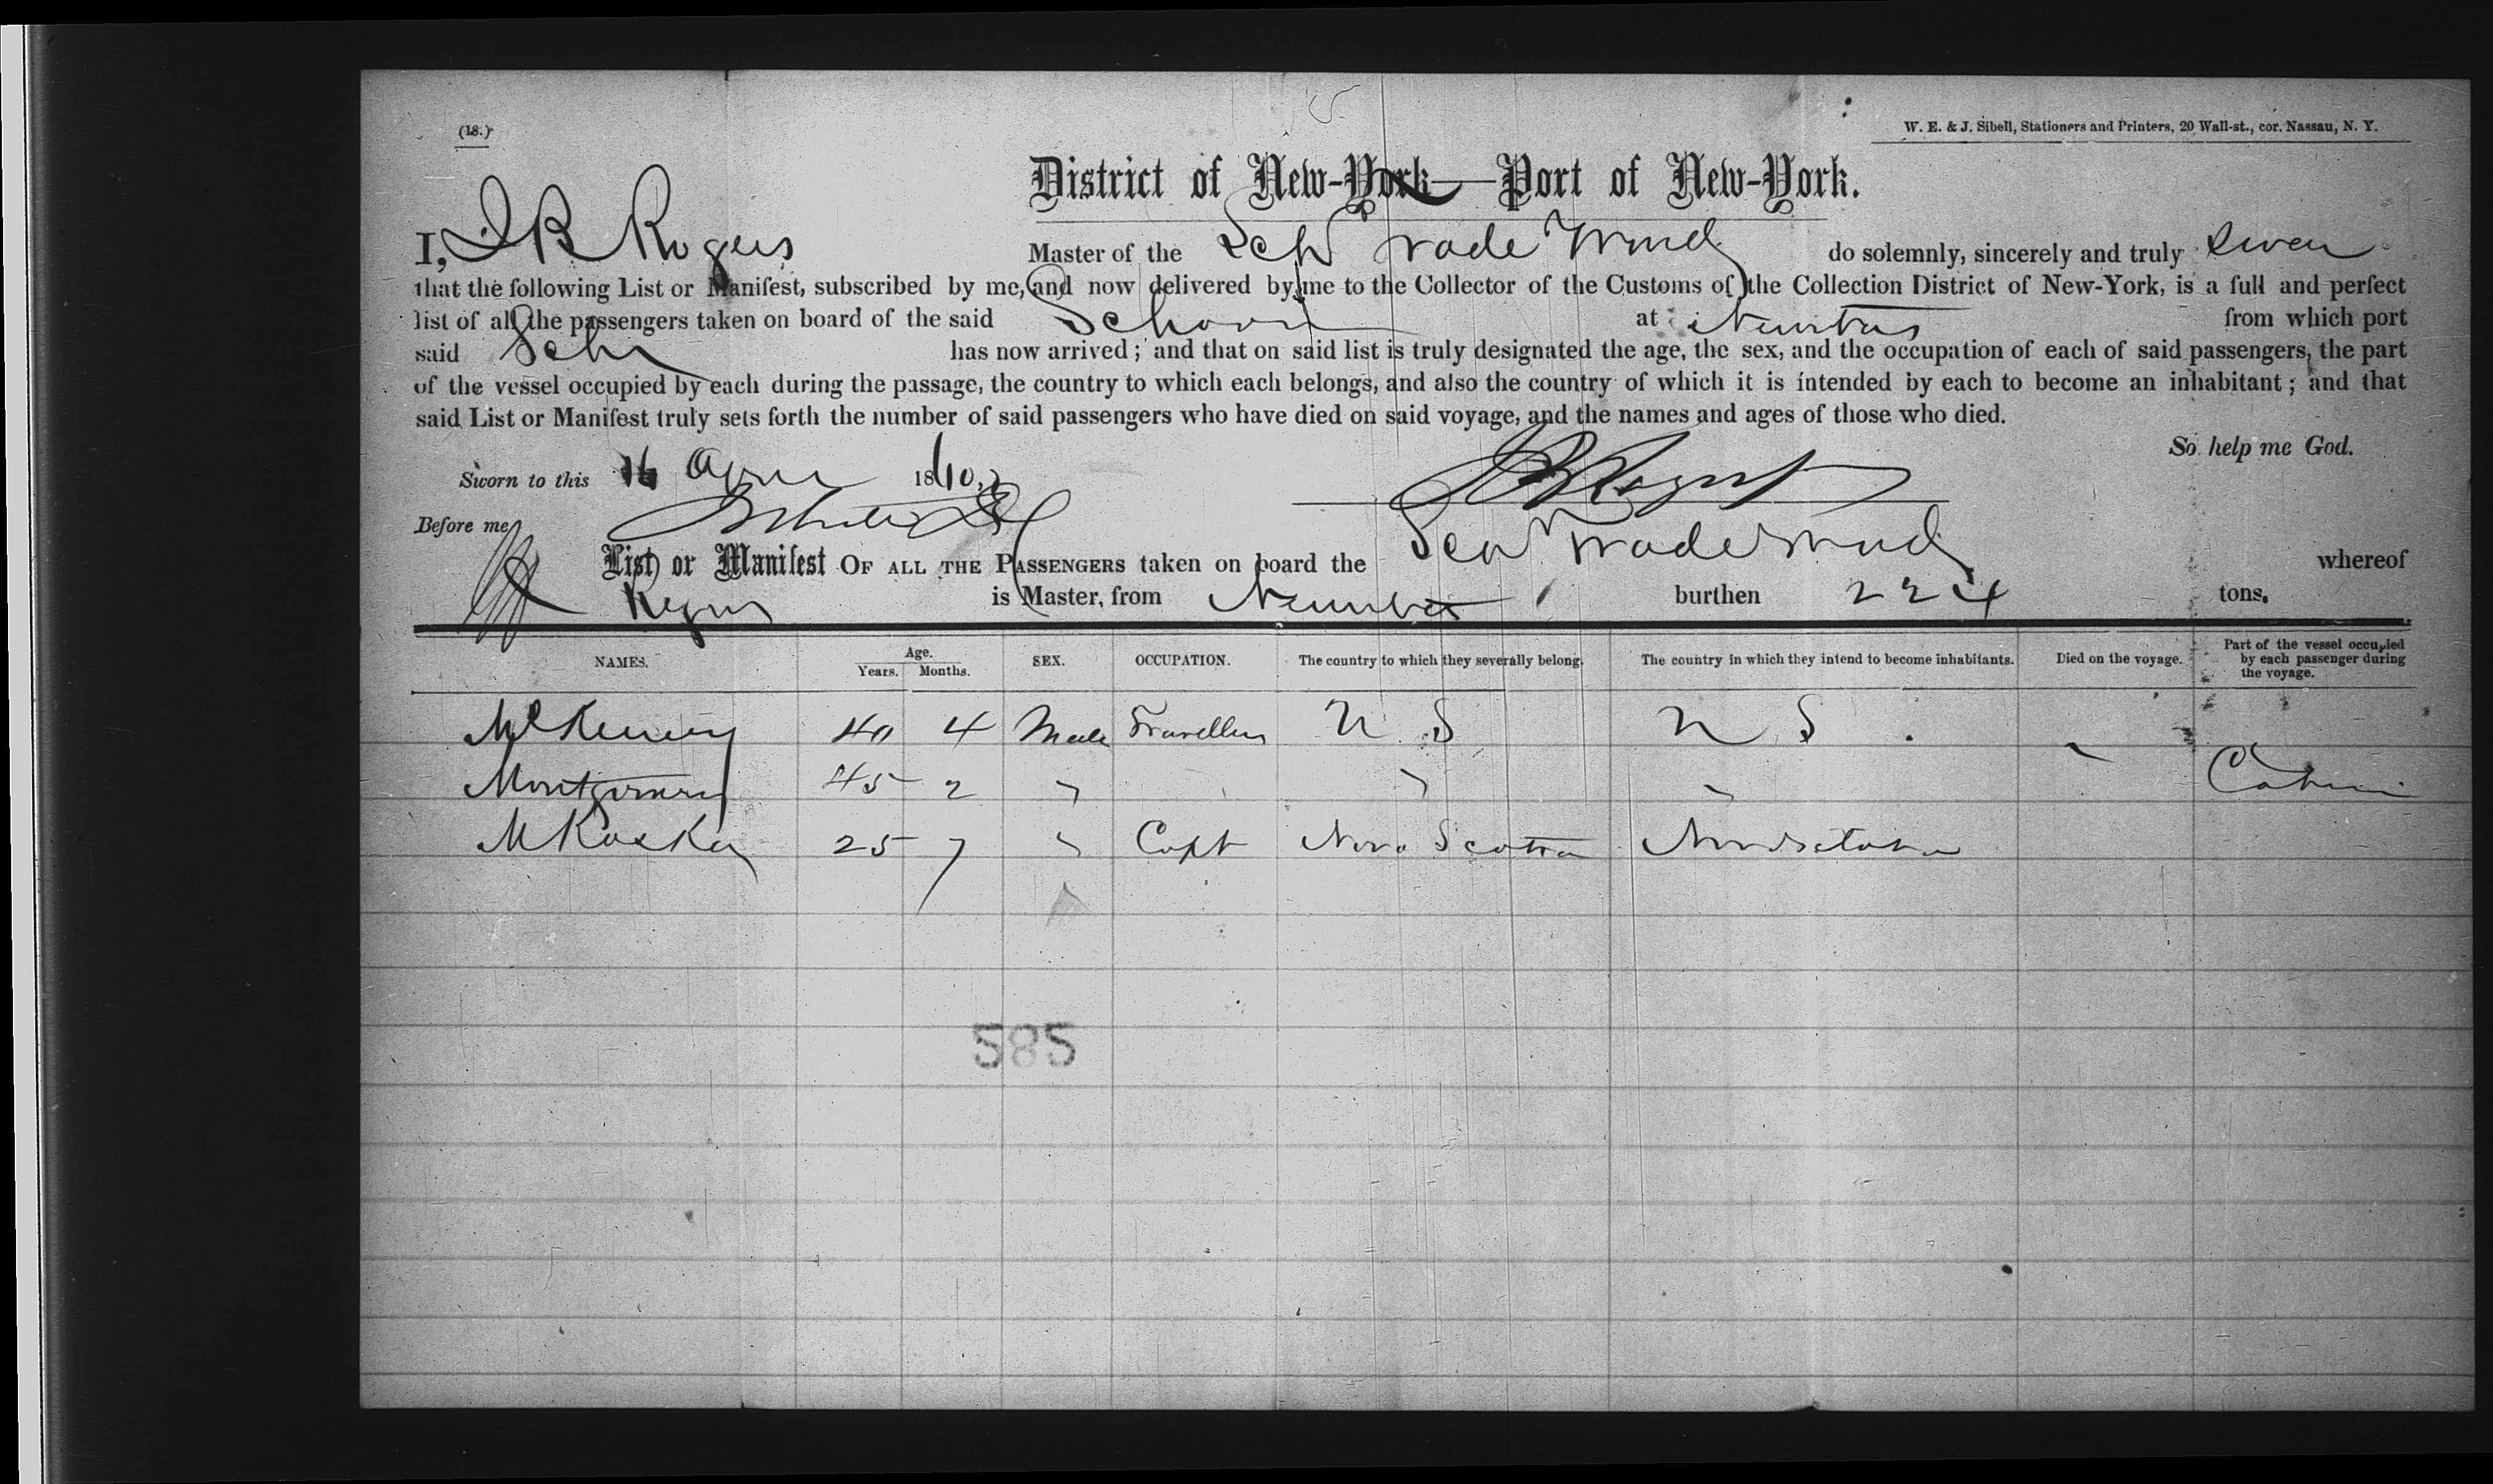 (18.)
W. E. & J. Sibell, Stationers and Printers, 20 Wall-st., cor. Nassau, N. Y.
District of New-York—Port of New-York.
I, J B Rogers Master of the Sch Trade Wind do solemnly, sincerely and truly swear
that the following List or Manifest, subscribed by me, and now delivered by me to the Collector of the Customs of the Collection District of New-York, is a full and perfect
list of all the passengers taken on board of the said Schoon at Nuevitas from which port
said Schr has now arrived; and that on said list is truly designated the age, the sex, and the occupation of each of said passengers, the part
of the vessel occupied by each during the passage, the country to which each belongs, and also the country of which it is intended by each to become an inhabitant; and that
said List or Manifest truly sets forth the number of said passengers who have died on said voyage, and the names and ages of those who died.
So help me God.
Sworn to this 16 April 1860. J B Rogers
Before me
List or Manifest OF ALL THE PASSENGERS taken on board the Trade Wind whereof
Rogers is Master, from Nuevitas burthen 224 tons.
NAMES. Age. Years. Months. SEX. OCCUPATION. The country to which they severally belong. The country in which they intend to become inhabitants. Died on the voyage. Part of the vessel occupied by each passenger during the voyage.
40 4 Male Traveller U S U S
Montgomery 45 2 " " " Cabin
25 7 " Capt Nova Scotia
585